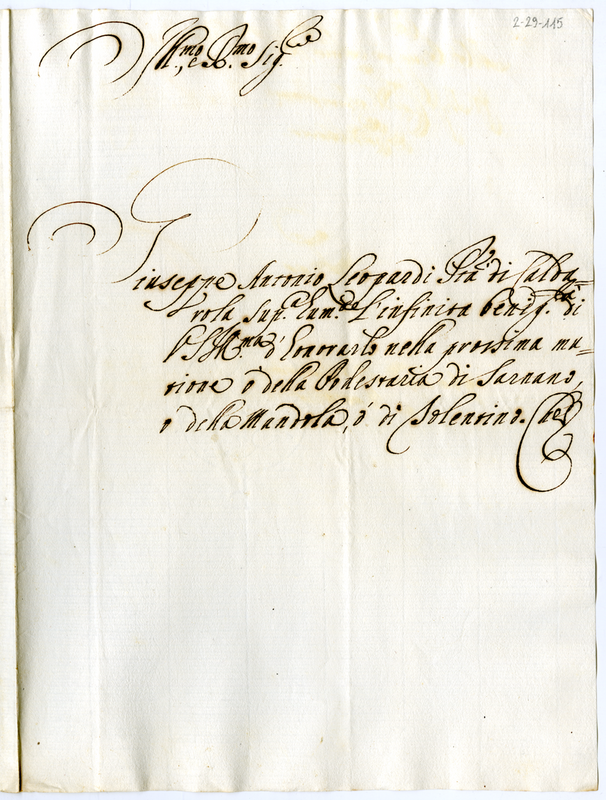 2-29-115
Ill.mo, e R.mo Sig.re
Giuseppe Antonio Leopardi P̃tà di Calda=
rola Sup.e Eum.te L'infinita benig.tà di
V.S. Ill.ma d'Honorarlo nella prossima mu=
tione ò della Podestaria di Sarnano,
o della Mandola, ó di Tolentino. Che